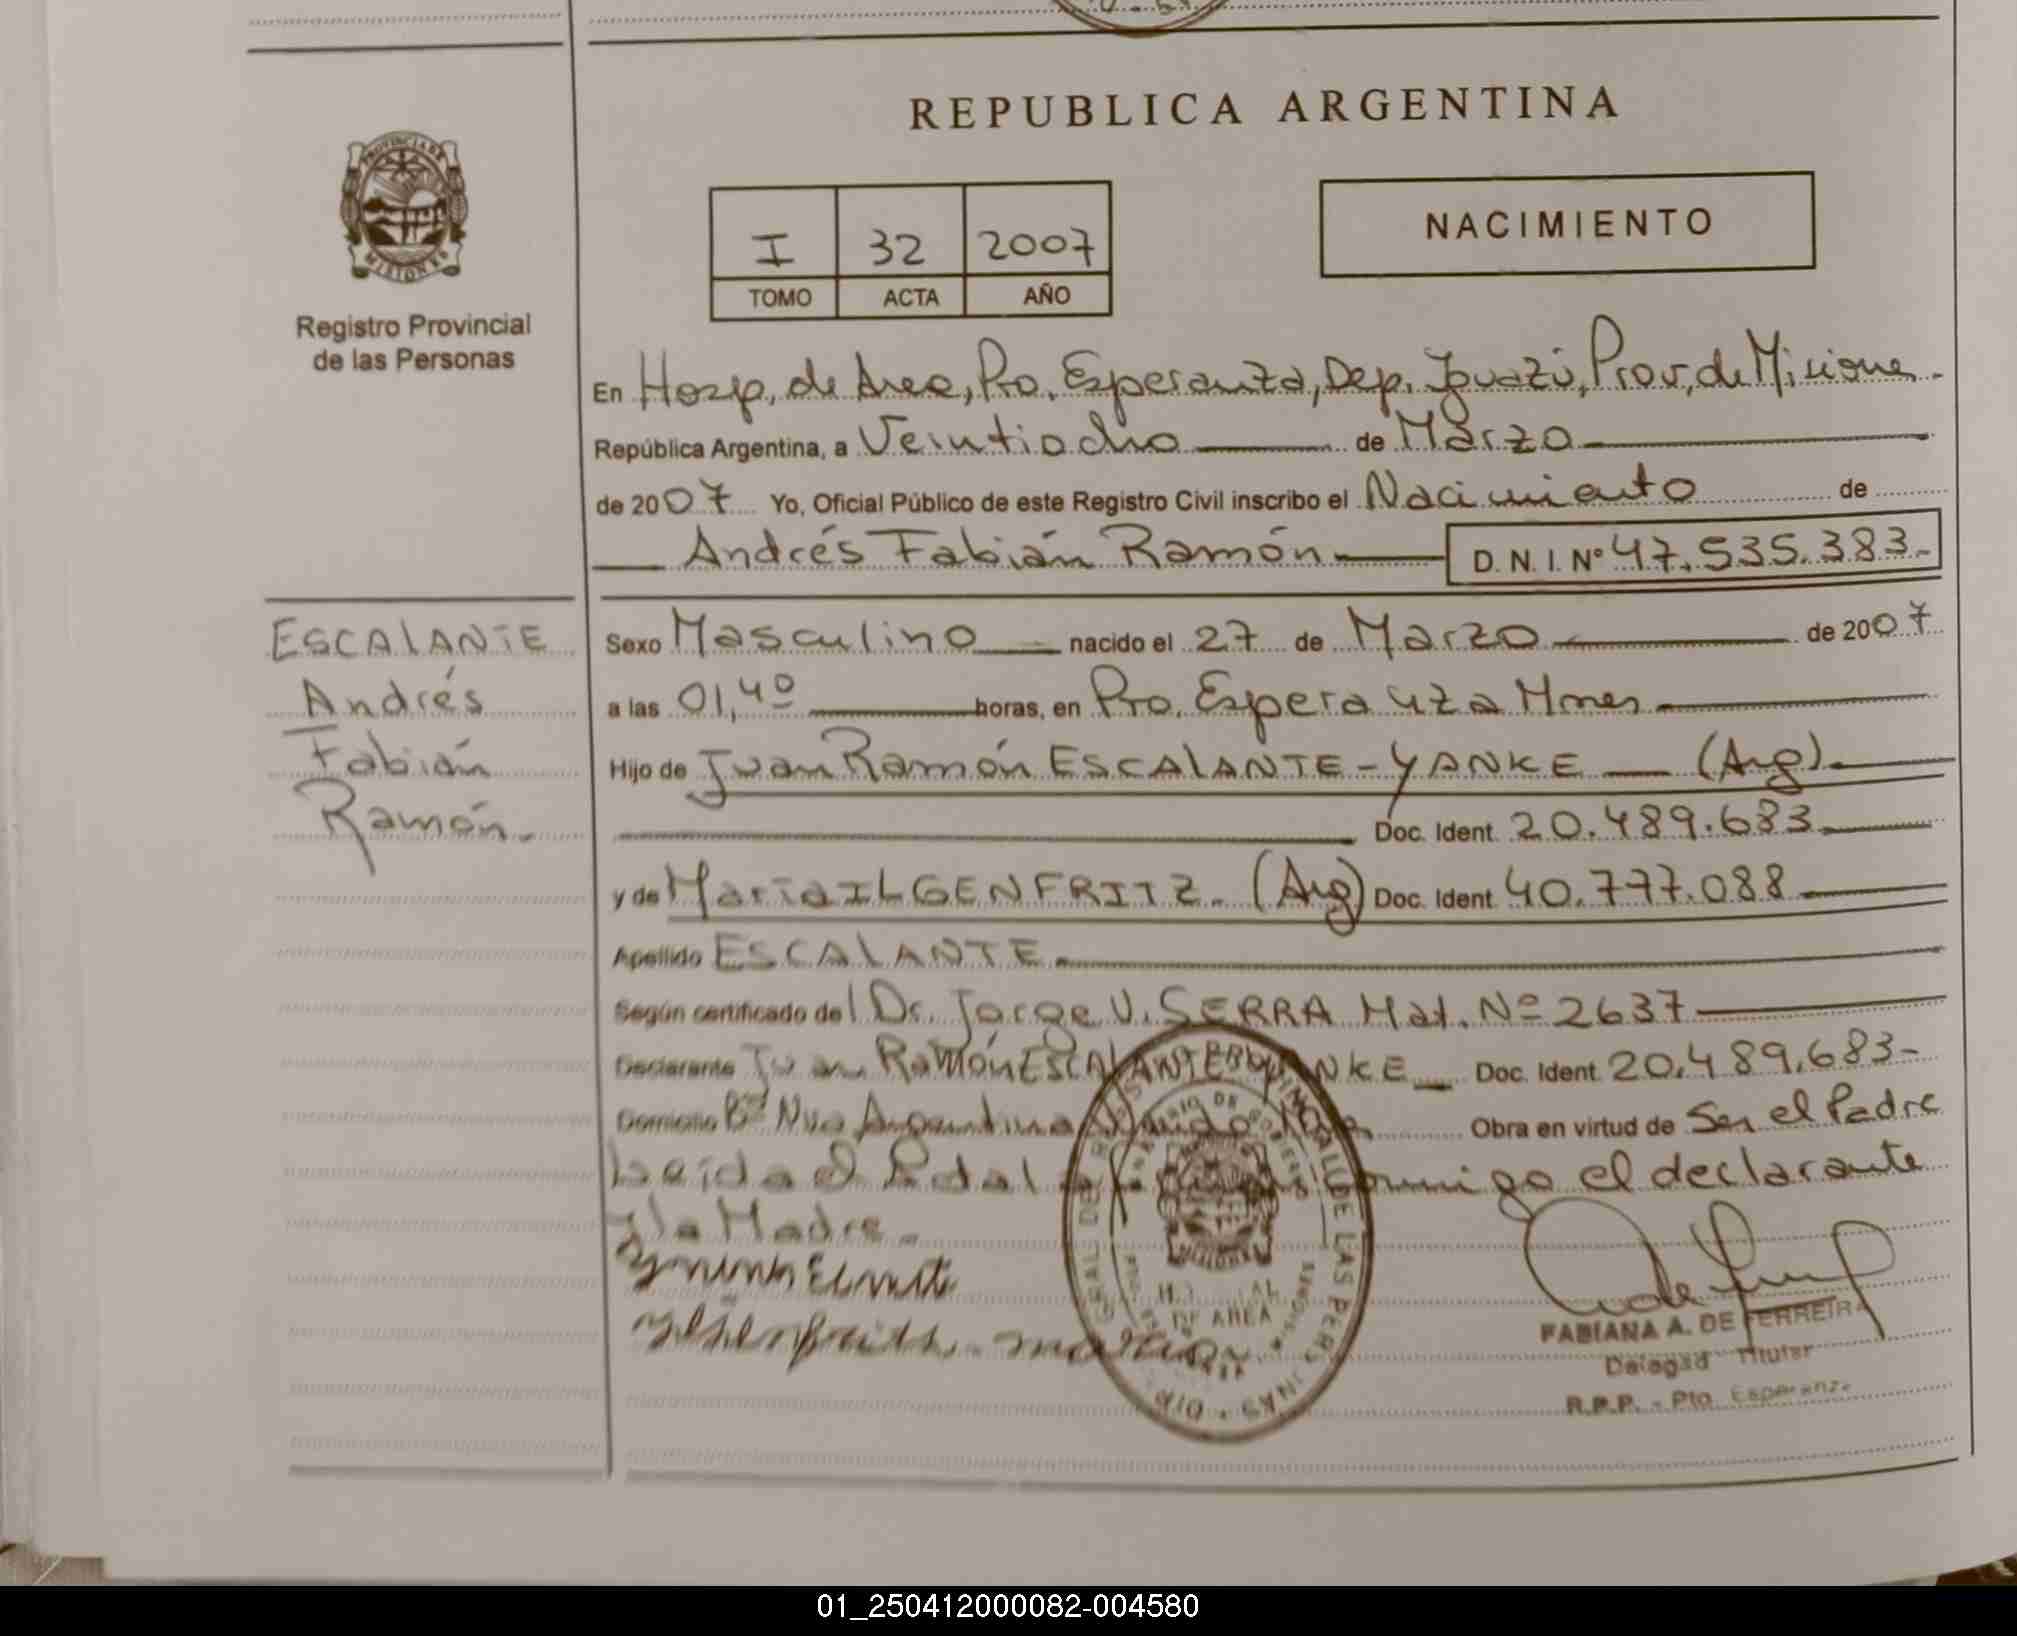 REPUBLICA ARGENTINA
PROVINCIA DE
MISIONES
Registro Provincial
de las Personas
I 32 2007
TOMO ACTA AÑO
NACIMIENTO
En Hosp, de Area, Pto. Esperanza, Dep. Iguazú, Prov, de Misiones.
República Argentina, a Veintiocho de Marzo
de 2007 Yo, Oficial Público de este Registro Civil inscribo el Nacimiento de
Andrés Fabián Ramón D. N. I. Nº 47.535.383.-
ESCALANTE
Andrés
Fabián
Ramón.
Sexo Masculino nacido el 27 de Marzo de 2007
a las 01,40 horas, en Pto. Esperanza Mnes
Hijo de Juan Ramón ESCALANTE - YANKE (Arg).
Doc. Ident. 20.489.683
y de María ILGENFRITZ. (Arg) Doc. Ident. 40.777.088
Apellido ESCALANTE.
Según certificado del Dr. Jorge V. SERRA Mat. Nº 2637
Declarante Juan Ramón ESCALANTE YANKE Doc. Ident. 20.489.683-
Domicilio Bº Nva Argentina Obra en virtud de Ser el Padre
Leída el conmigo el declarante
y la Madre.
DE AREA
FABIANA A. DE FERREIRA
Delegad Titular
R.P.P. - Pto. Esperanza
01_250412000082-004580